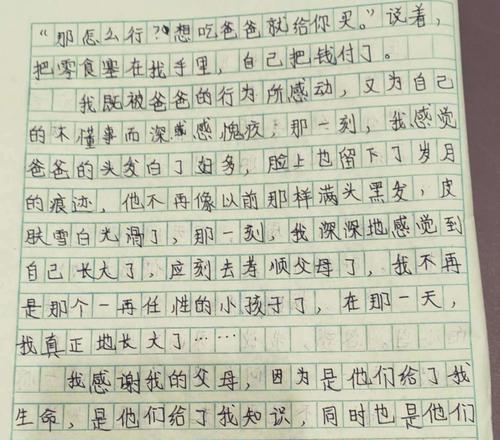 “那怎么行？想吃爸爸就给你买。”说着，
把零食塞在我手里，自己把钱付了。
我既被爸爸的行为所感动，又为自己
的不懂事而深感愧疚，那一刻，我感觉
爸爸的头发白了好多，脸上也留下了岁月
的痕迹，他不再像以前那样满头黑发，皮
肤雪白光滑了，那一刻，我深深地感觉到
自己长大了，应刻去孝顺父母了，我不再
是那个一再任性的小孩子了，在那一天，
我真正地长大了……
我感谢我的父母，因为是他们给了我
生命，是他们给了我知识，同时也是他们